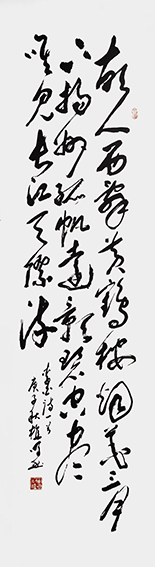 故人西辞黄鶴楼烟花三月
下揚州孤帆遠影碧空尽
唯見長江天際流
李白詩一首
庚子秋